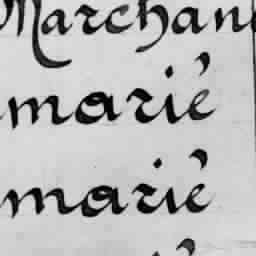 Marchand
marié
marié